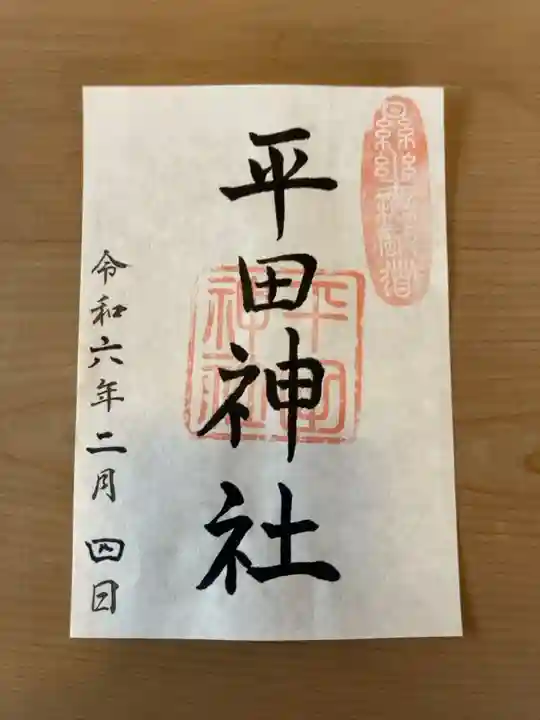 平田神社
令和六年二月四日
平田
神社